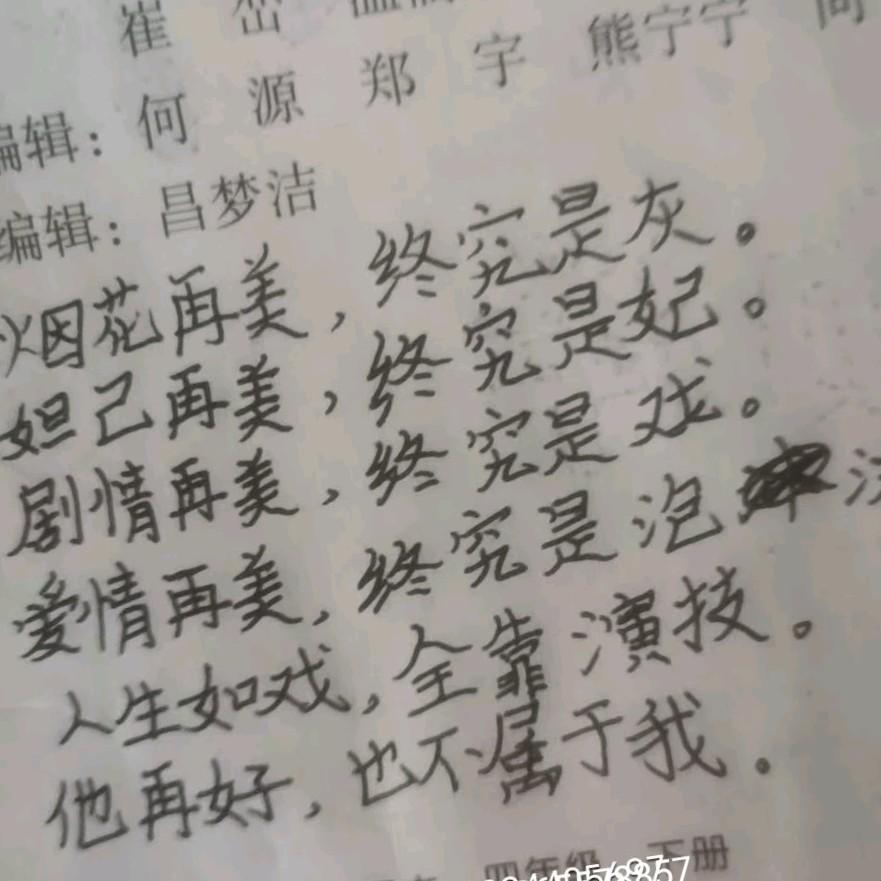 崔 峦
编辑：何 源 郑 宇 熊宁宁
编辑：昌梦洁
烟花再美，终究是灰。
妲己再美，终究是妃。
剧情再美，终究是戏。
爱情再美，终究是泡
人生如戏，全靠演技。
他再好，也不属于我。
四年级 下册